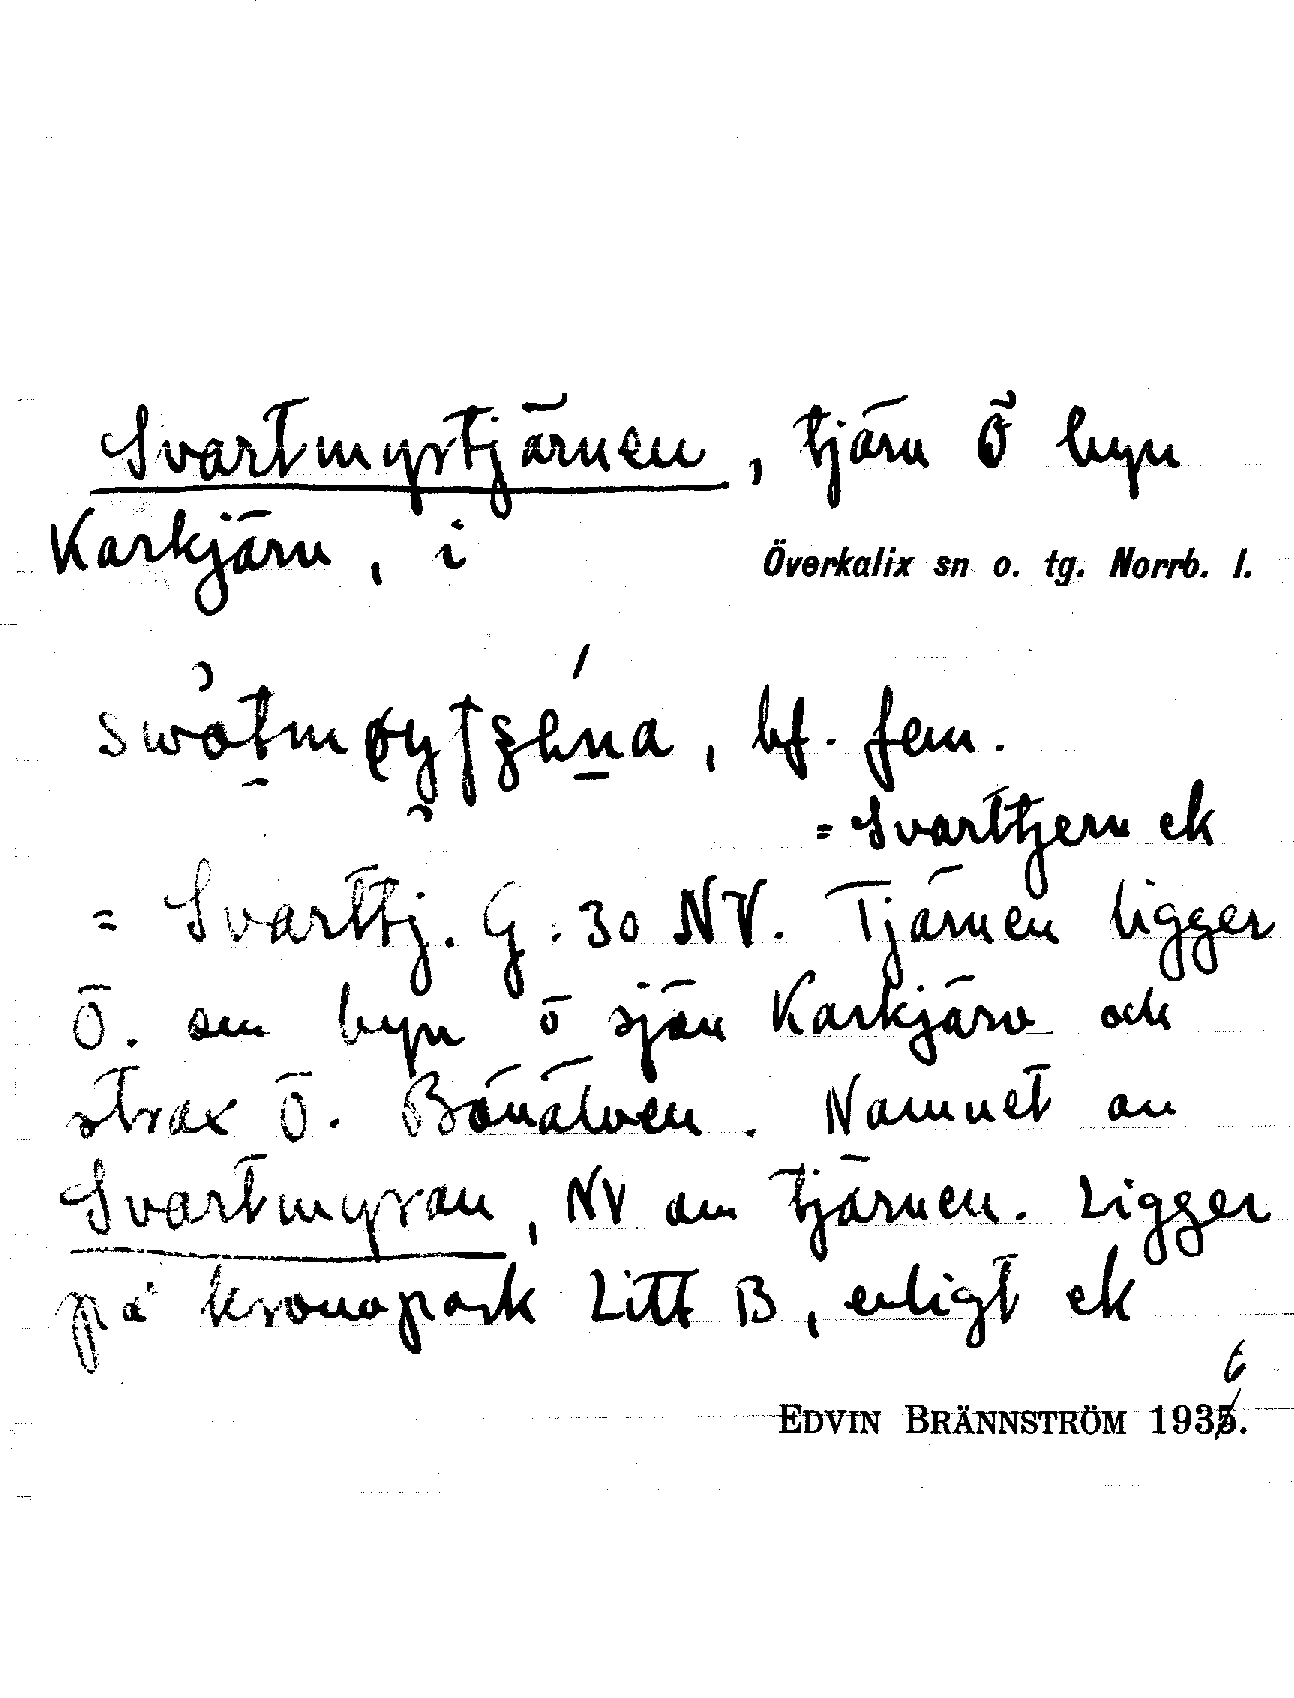 Svartmyrtjärnen, tjärn Ö byn
Karkjärv, i Överkalix sn o. tg. Norrb. l.
bf. fem.
= Svarttjern ek
= Svarttj. G. 30 NV. Tjärnen ligger
Ö. om byn o sjön Karkjärv och
strax Ö. Bönälven. Namnet av
Svartmyran, NV om tjärnen. Ligger
på kronopark Litt B, enligt ek
6
EDVIN BRÄNNSTRÖM 1935.